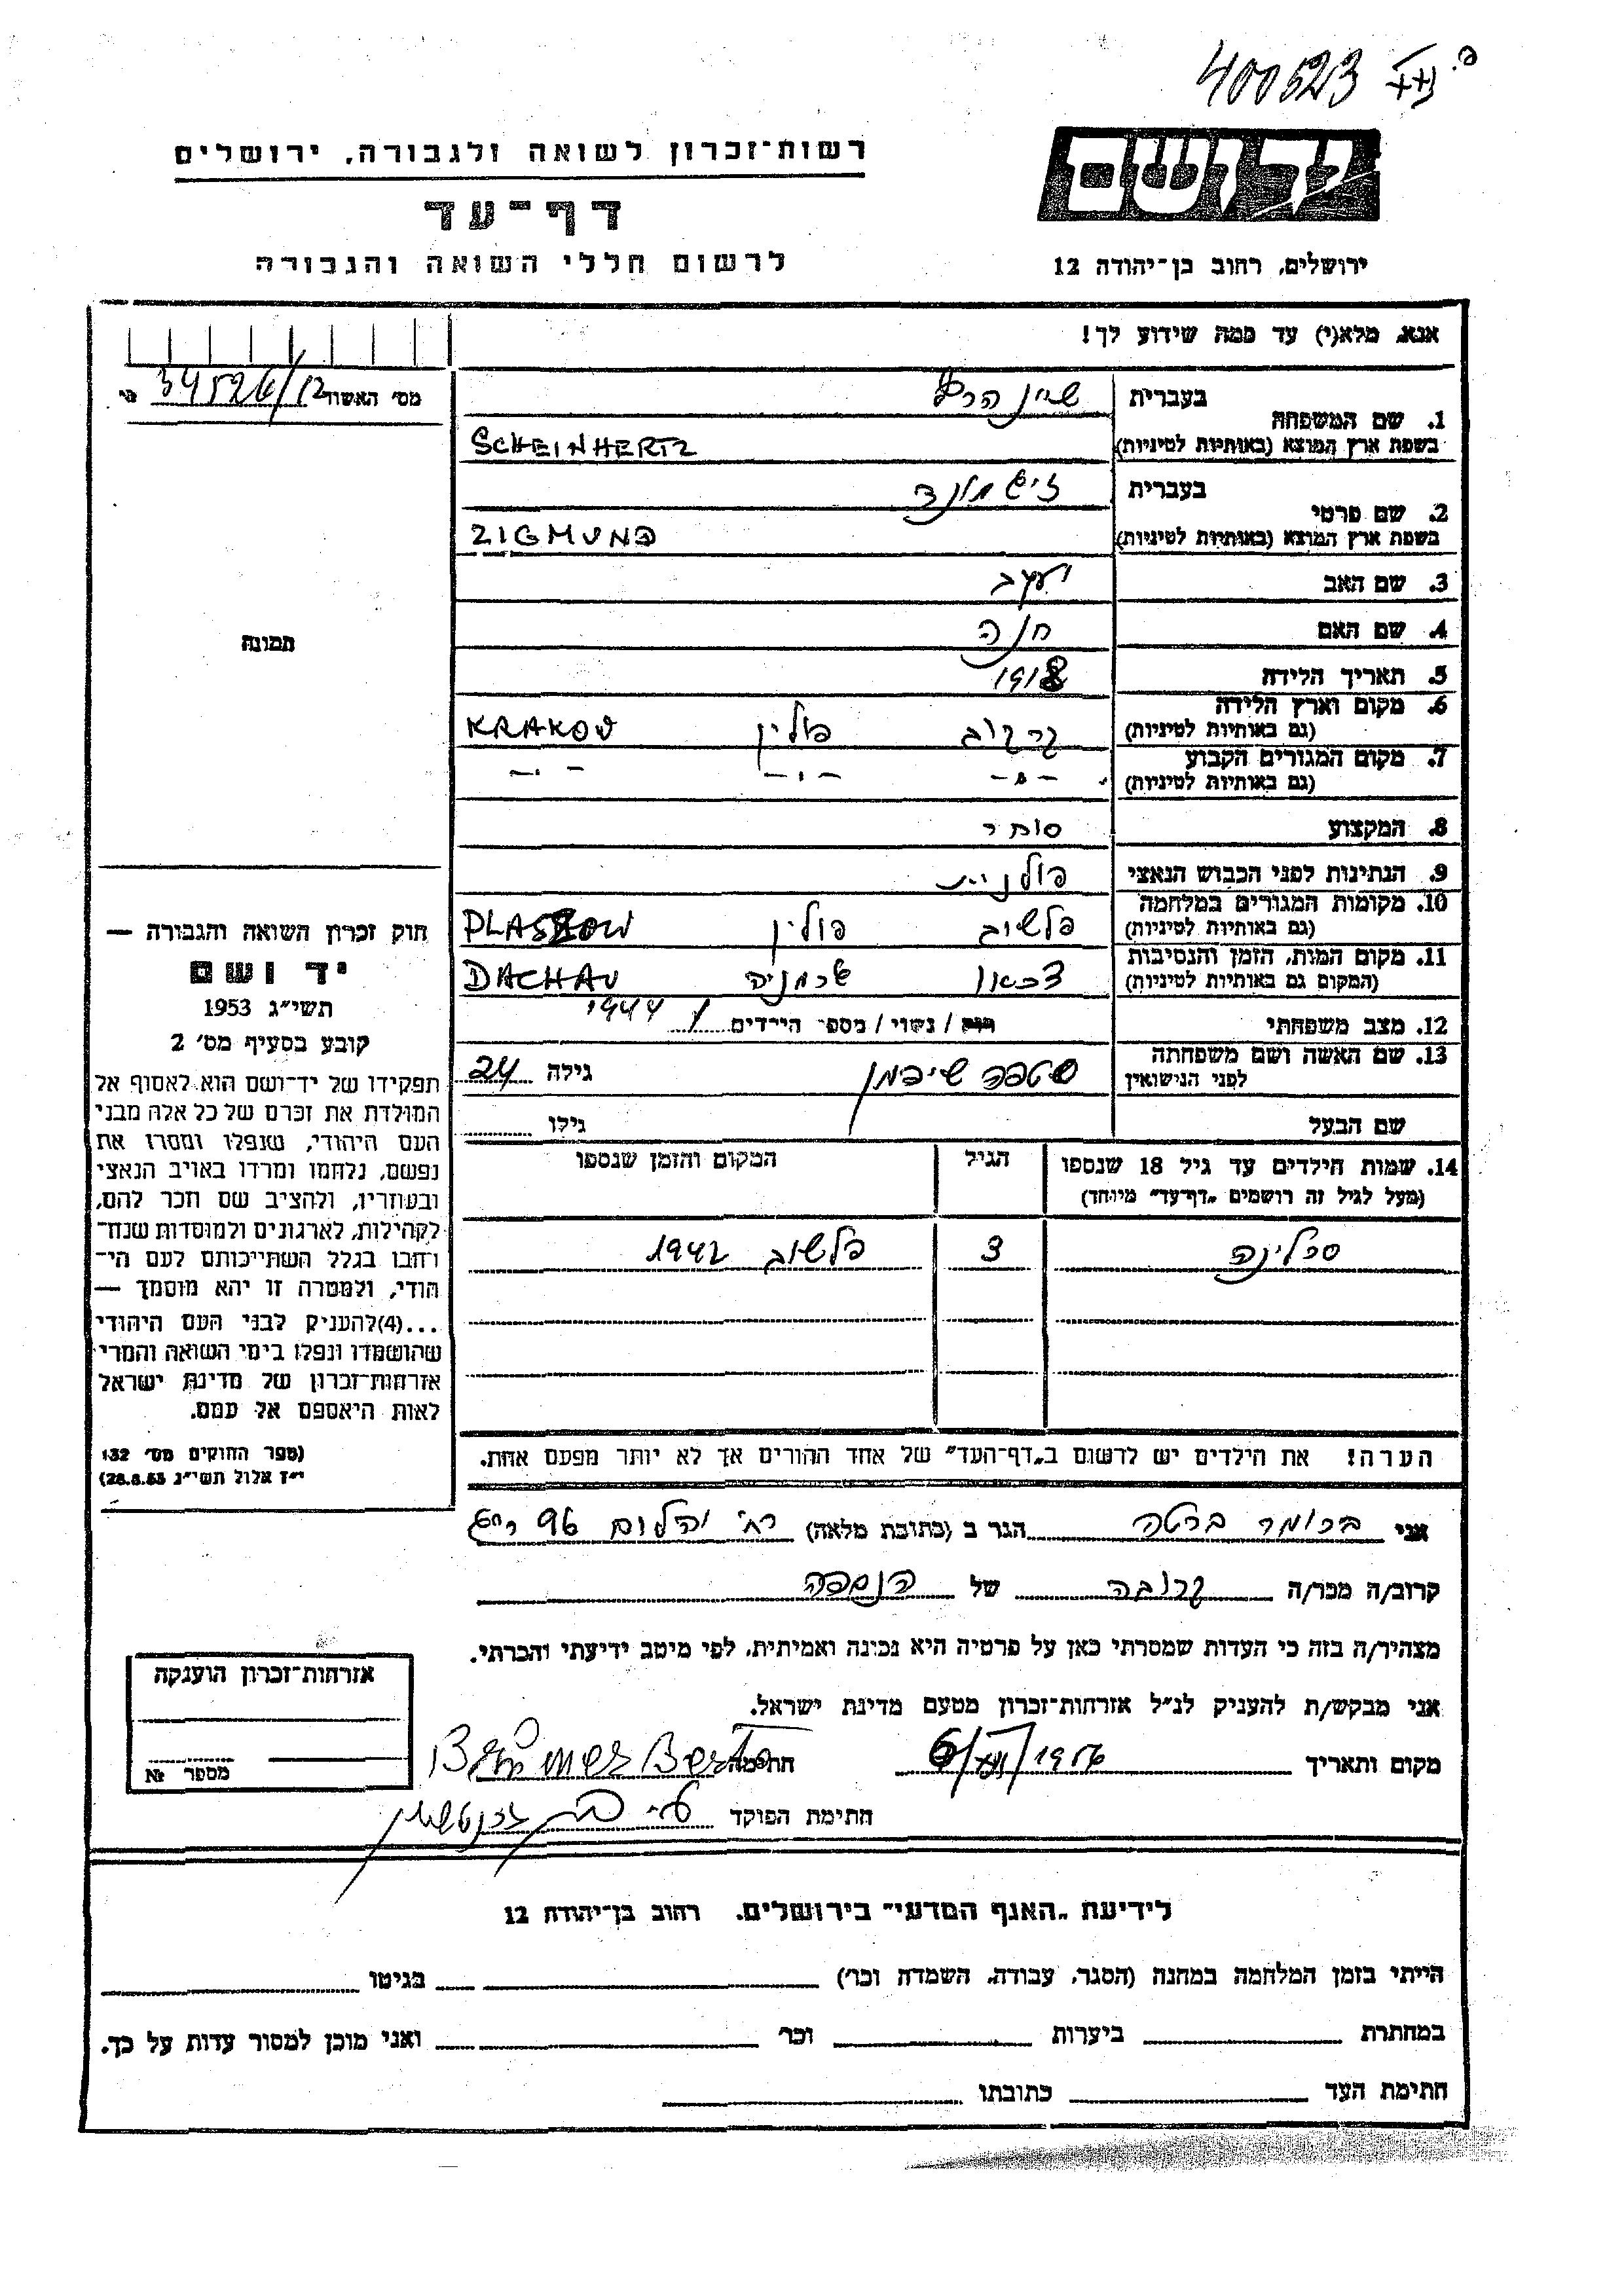 400523
רשות־זכרון לשואה ולגבורה, ירושלים
דף־עד
לרשום חללי השואה והגבורה
יד ושם
ירושלים, רחוב בן־יהודה 12
אנא, מלא(י) עד כמה שידוע לך!
מס׳ האשור 34526/12
1. שם המשפחה
בעברית שיין הרץ
בשפת ארץ המוצא (באותיות לטיניות) SCHEINHERTZ
2. שם פרטי
בעברית זיגמונד
בשפת ארץ המוצא (באותיות לטיניות) ZIGMUND
3. שם האב יעקב
4. שם האם חנה
5. תאריך הלידה 1918
6. מקום וארץ הלידה
(גם באותיות לטיניות) קרקוב פולין KRAKOV
7. מקום המגורים הקבוע
(גם באותיות לטיניות) -"- -"- -"-
8. המקצוע סוחר
9. הנתינות לפני הכבוש הנאצי פולנית
10. מקומות המגורים במלחמה
(גם באותיות לטיניות) פלשוב פולין PLASZOW
11. מקום המות, הזמן והנסיבות
(המקום גם באותיות לטיניות) דכאו גרמניה DACHAU
1944
12. מצב משפחתי רווק / נשוי / מספר הילדים 1
13. שם האשה ושם משפחתה
לפני הנישואין סטפה שיפמן גילה 24
שם הבעל גילו
14. שמות הילדים עד גיל 18 שנספו הגיל המקום והזמן שנספו
(מעל לגיל זה רושמים „דף־עד" מיוחד)
3 פלשוב 1942
הערה! את הילדים יש לרשום ב„דף־העד" של אחד ההורים אך לא יותר מפעם אחת.
תמונה
חוק זכרון השואה והגבורה —
יד ושם
תשי״ג 1953
קובע בסעיף מס׳ 2
תפקידו של יד־ושם הוא לאסוף אל
המולדת את זכרם של כל אלה מבני
העם היהודי, שנפלו ומסרו את
נפשם, נלחמו ומרדו באויב הנאצי
ובעוזריו, ולהציב שם וזכר להם,
לקהילות, לארגונים ולמוסדות שנח־
רחבו בגלל השתייכותם לעם הי־
הודי, ולמטרה זו יהא מוסמך —
...(4)להעניק לבני העם היהודי
שהושמדו ונפלו בימי השואה והמרי
אזרחות־זכרון של מדינת ישראל
לאות היאספם אל עמם.
(ספר החוקים מס׳ 132
י״ז אלול תשי״ג 28.8.53)
אני ברומר ברטה הגר ב (כתובת מלאה) רח׳ יהלום 96 ר״ג
קרוב/ה מכר/ה קרובה של הנספה
מצהיר/ה בזה כי העדות שמסרתי כאן על פרטיה היא נכונה ואמיתית, לפי מיטב ידיעתי והכרתי.
אני מבקש/ת להעניק לנ״ל אזרחות־זכרון מטעם מדינת ישראל.
מקום ותאריך 1956 חתימה Berta
חתימת הפוקד
אזרחות־זכרון הוענקה
מספר №
לידיעת „האגף המדעי" בירושלים, רחוב בן־יהודה 12
הייתי בזמן המלחמה במחנה (הסגר, עבודה, השמדה וכר׳) בגיטו
במחתרת ביערות וכר׳ ואני מוכן למסור עדות על כך.
חתימת העד כתובתו